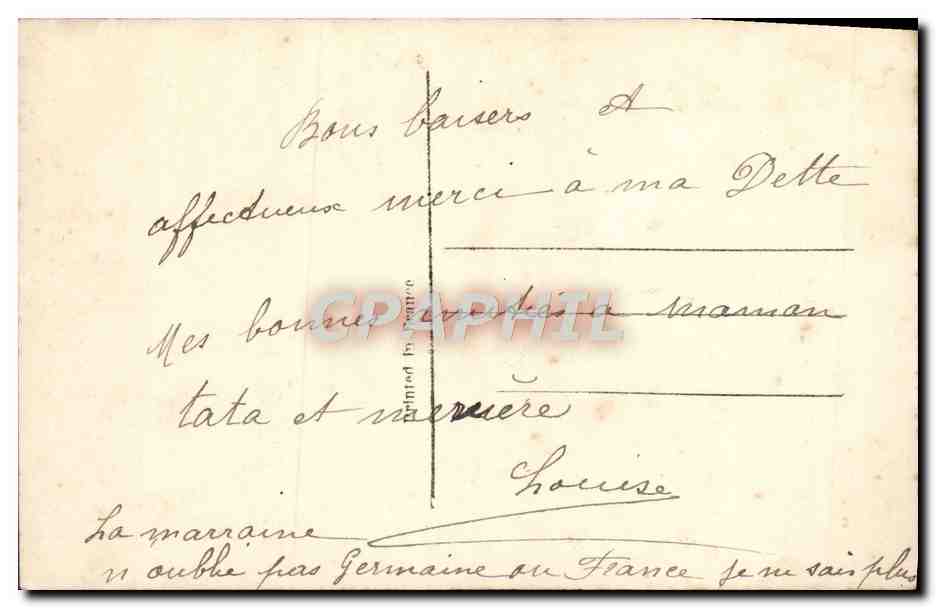 Bons baisers et
affectueux merci à ma Dette
Mes bonnes amitiés a maman
tata et
Louise
La marraine
n oublie pas Germaine ou France je ne sais plus
Printed in France
CPAPHIL